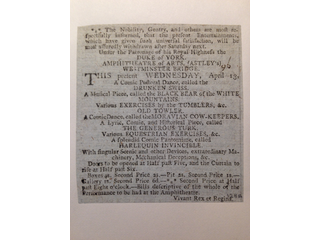 *₊* The Nobility, Gentry, and others are most re-
spectfully informed, that the present Entertainments,
which have given such universal satisfaction, will be
most assuredly withdrawn after Saturday next.
Under the Patronage of his Royal Highness the
DUKE of YORK.
AMPHITHEATRE of ARTS, (ASTLEY's)
WESTMINSTER BRIDGE.
THIS present WEDNESDAY, April 13,
A Comic Pastoral Dance, called the
DRUNKEN SWISS.
A Musical Piece, called the BLACK BEAR of the WHITE
MOUNTAINS.
Various EXERCISES by the TUMBLERS, &c.
OLD TOWLER.
A Comic Dance, called the MORAVIAN COW-KEEPERS.
A Lyric, Comic, and Historical Piece, called
THE GENEROUS TURK.
Various EQUESTRIAN EXERCISES, &c.
A splendid Comic Pantomime, called
HARLEQUIN INVINCIBLE.
With singular Scenic and other Devices, extraordinary Ma-
chinery, Mechanical Deceptions, &c.
Doors to be opened at Half past Five, and the Curtain to
rise at Half past Six.
Second Price
Gallery Second Price at Half
past Eight o'clock.—Bills descriptive of the whole of the
Performance to be had at the Amphitheatre.
Vivant Rex et Regina.